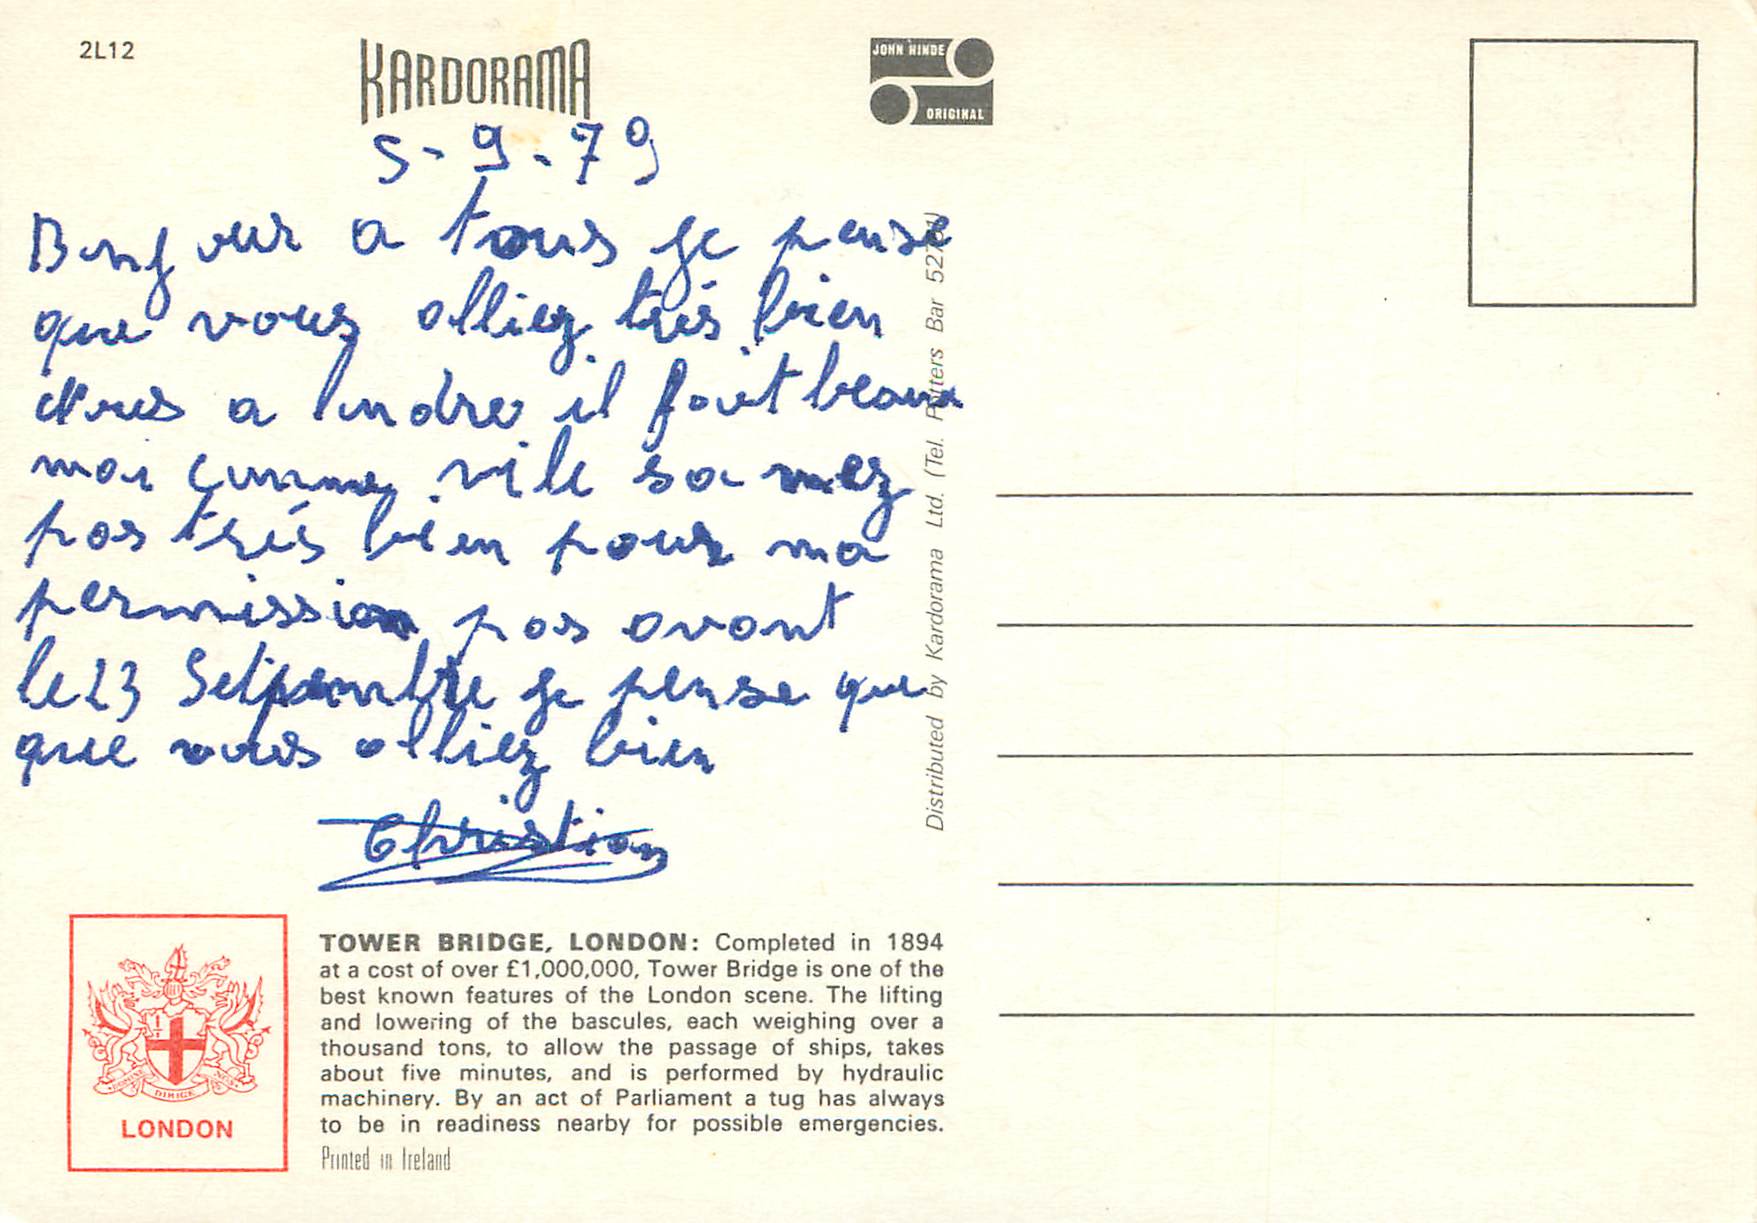 2L12
KARDORAMA
JOHN HINDE
ORIGINAL
5-9-79
Bonjour a tous je pense
que vous alliez très bien
a londre il fait beaux
mai comme vile sa mez
pas très bien pour ma
permission pas avant
le 23 Setpembre je pense que
que vous alliez bien
Christian
Distributed by Kardorama Ltd. (Tel. Potters Bar
LONDON
TOWER BRIDGE, LONDON: Completed in 1894
at a cost of over £1,000,000, Tower Bridge is one of the
best known features of the London scene. The lifting
and lowering of the bascules, each weighing over a
thousand tons, to allow the passage of ships, takes
about five minutes, and is performed by hydraulic
machinery. By an act of Parliament a tug has always
to be in readiness nearby for possible emergencies.
Printed in Ireland